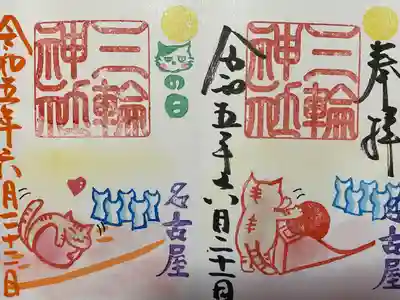 奉拝
三輪神社
令和五年六月二十一日
屋
の日
三輪神社
名古屋
令和五年六月二十二日